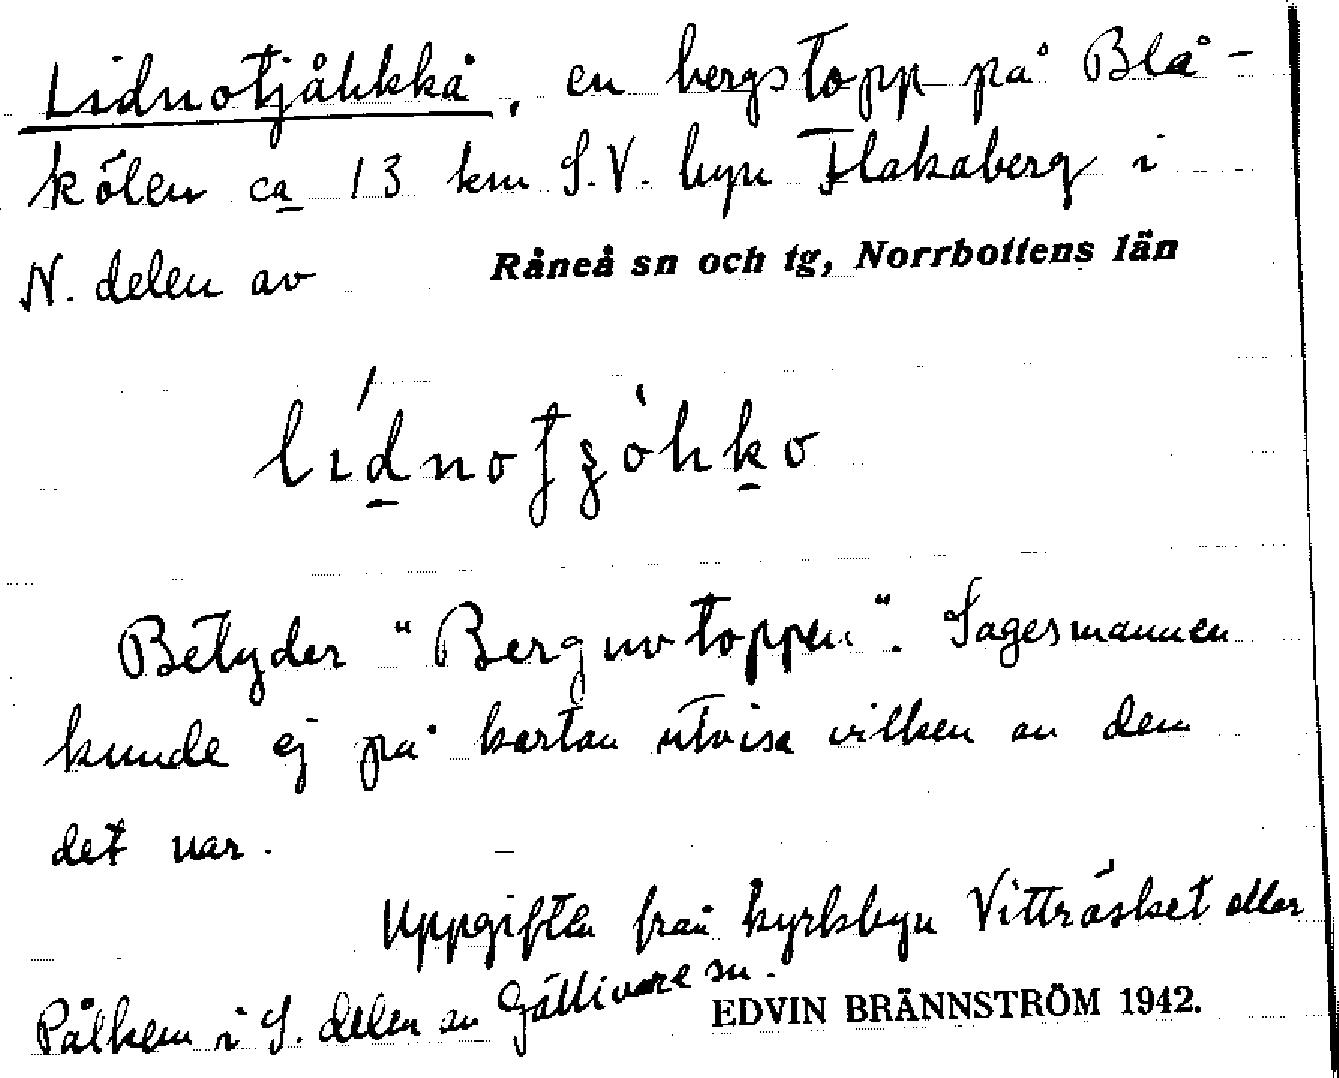 Lidnotjåhkkå, en bergstopp på Blå-
kölen ca 13 km S.V. byn Flakaberg i
N. delen av Råneå sn och tg, Norrbottens län
Betyder "Berguvtoppen". Sagesmannen
kunde ej på kartan utvisa vilken av dem
det var.
Uppgiften från kyrkbyn Vitträsket eller
Pålkem i S. delen av Gällivare sn.
EDVIN BRÄNNSTRÖM 1942.